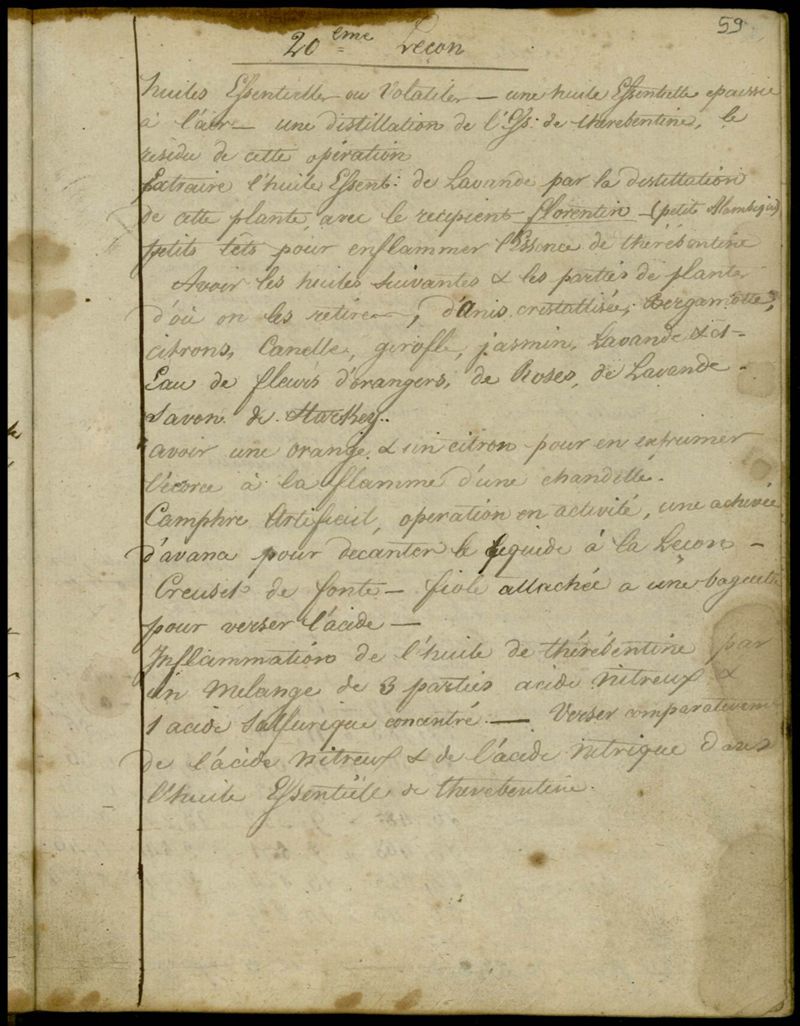 59
20eme Leçon
huiles Essentielles ou Volatiles — une huile Essentielle epaissie
à l'air — une distillation de l'Ess: de therebentine, le
residu de cette opération
Extraire l'huile Essent: de Lavande par la distillation
de cette plante, avec le recipient florentin — (petit Alambique)
petits têts pour enflammer l'Essence de thérébentine
Avoir les huiles suivantes & les parties de plantes
d'où on les retire —, d'anis cristallisée, Bergamotte,
citrons, Canelle, girofle, jasmin, Lavande
Eau de fleurs d'orangers, de Roses, de Lavande —
Savon de Starkey..
avoir une orange & un citron pour en exprimer
l'écorce à la flamme d'une chandelle.
Camphre Artificiel, operation en activité, une achevée
d'avance pour decanter le liquide à la Leçon —
Creuset de fonte — fiole attachée a une baguette
pour verser l'acide —
Inflammation de l'huile de thérébentine par
un Melange de 3 parties acide nitreux &
1 acide Sulfurique concentré. — Verser comparativement
de l'acide nitreux & de l'acide nitrique dans
l'huile Essentielle de therebentine.